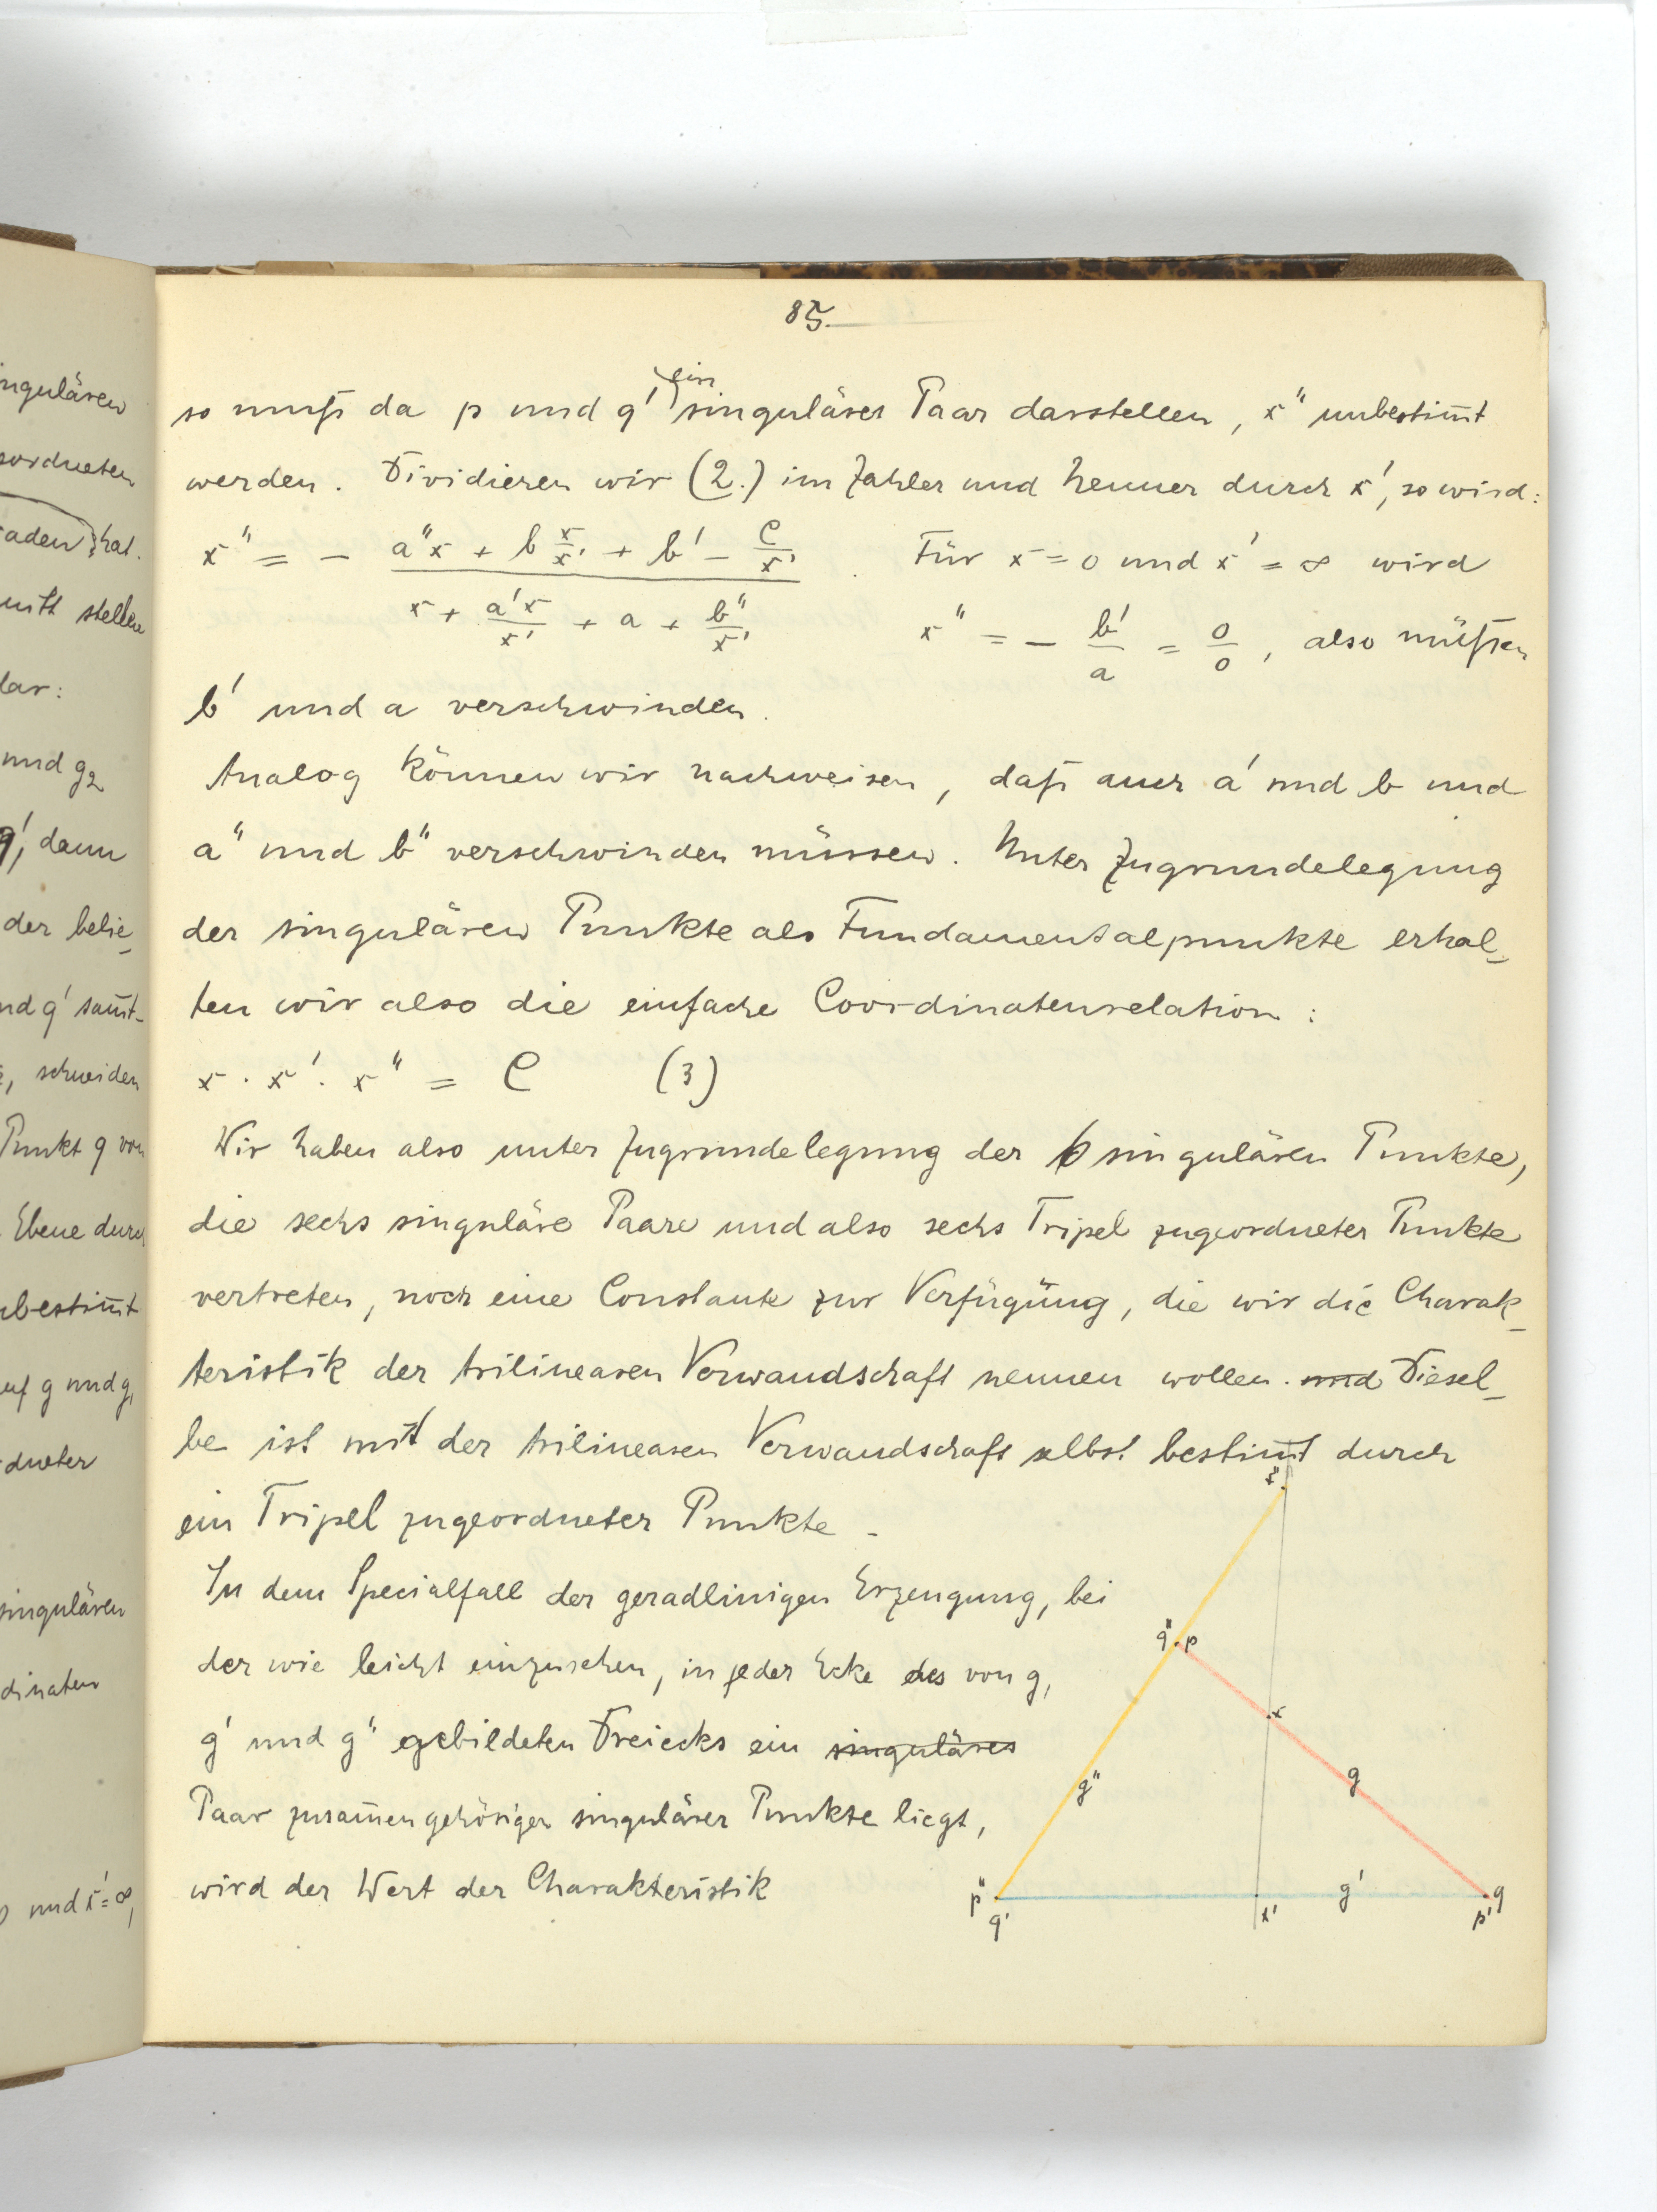 85.
so muß da p und q' ein singuläres Paar darstellen, x'' unbestim̅t
werden. Dividieren wir (2.) im Zähler und Nenner durch x', so wird:
x'' = - (a''x + b x/x' + b' - C/x') / (x + a'x/x' + a + b''/x') . Für x = 0 und x' = ∞ wird
x'' = - b'/a = 0/0, also müßten
b' und a verschwinden.
Analog können wir nachweisen, daß auch a' und b und
a'' und b'' verschwinden müssen. Unter Zugrundelegung
der singulären Punkte als Fundamentalpunkte erhal-
ten wir also die einfache Coordinatenrelation:
x · x' · x'' = C (3)
Wir haben also unter Zugrundelegung der 6 singulären Punkte,
die sechs singuläre Paare und also sechs Tripel zugeordneter Punkte
vertreten, noch eine Constante zur Verfügung, die wir die Charak-
teristik der trilinearen Verwandschaft nennen wollen. und Diesel-
be ist mit der trilinearen Verwandschaft selbst bestim̅t durch
ein Tripel zugeordneter Punkte.
In dem Specialfall der geradlinigen Erzeugung, bei
der wie leicht einzusehen, in jeder Ecke des von g,
g' und g'' gebildeten Dreiecks ein singuläres
Paar zusam̅engehöriger singulärer Punkte liegt,
wird der Wert der Charakteristik
x''
q'' p
x
g
g''
p''
q'
x'
g'
q
p'
ingulären
ordneten
aden hat.
mitt stellen
dar:
und g2
q', dann
der belie-
nd q' sam̅t-
schneiden
Punkt q von
Ebene durch
nbestim̅t
auf g und g,
dneter
singulären
dinaten
und x' = ∞,